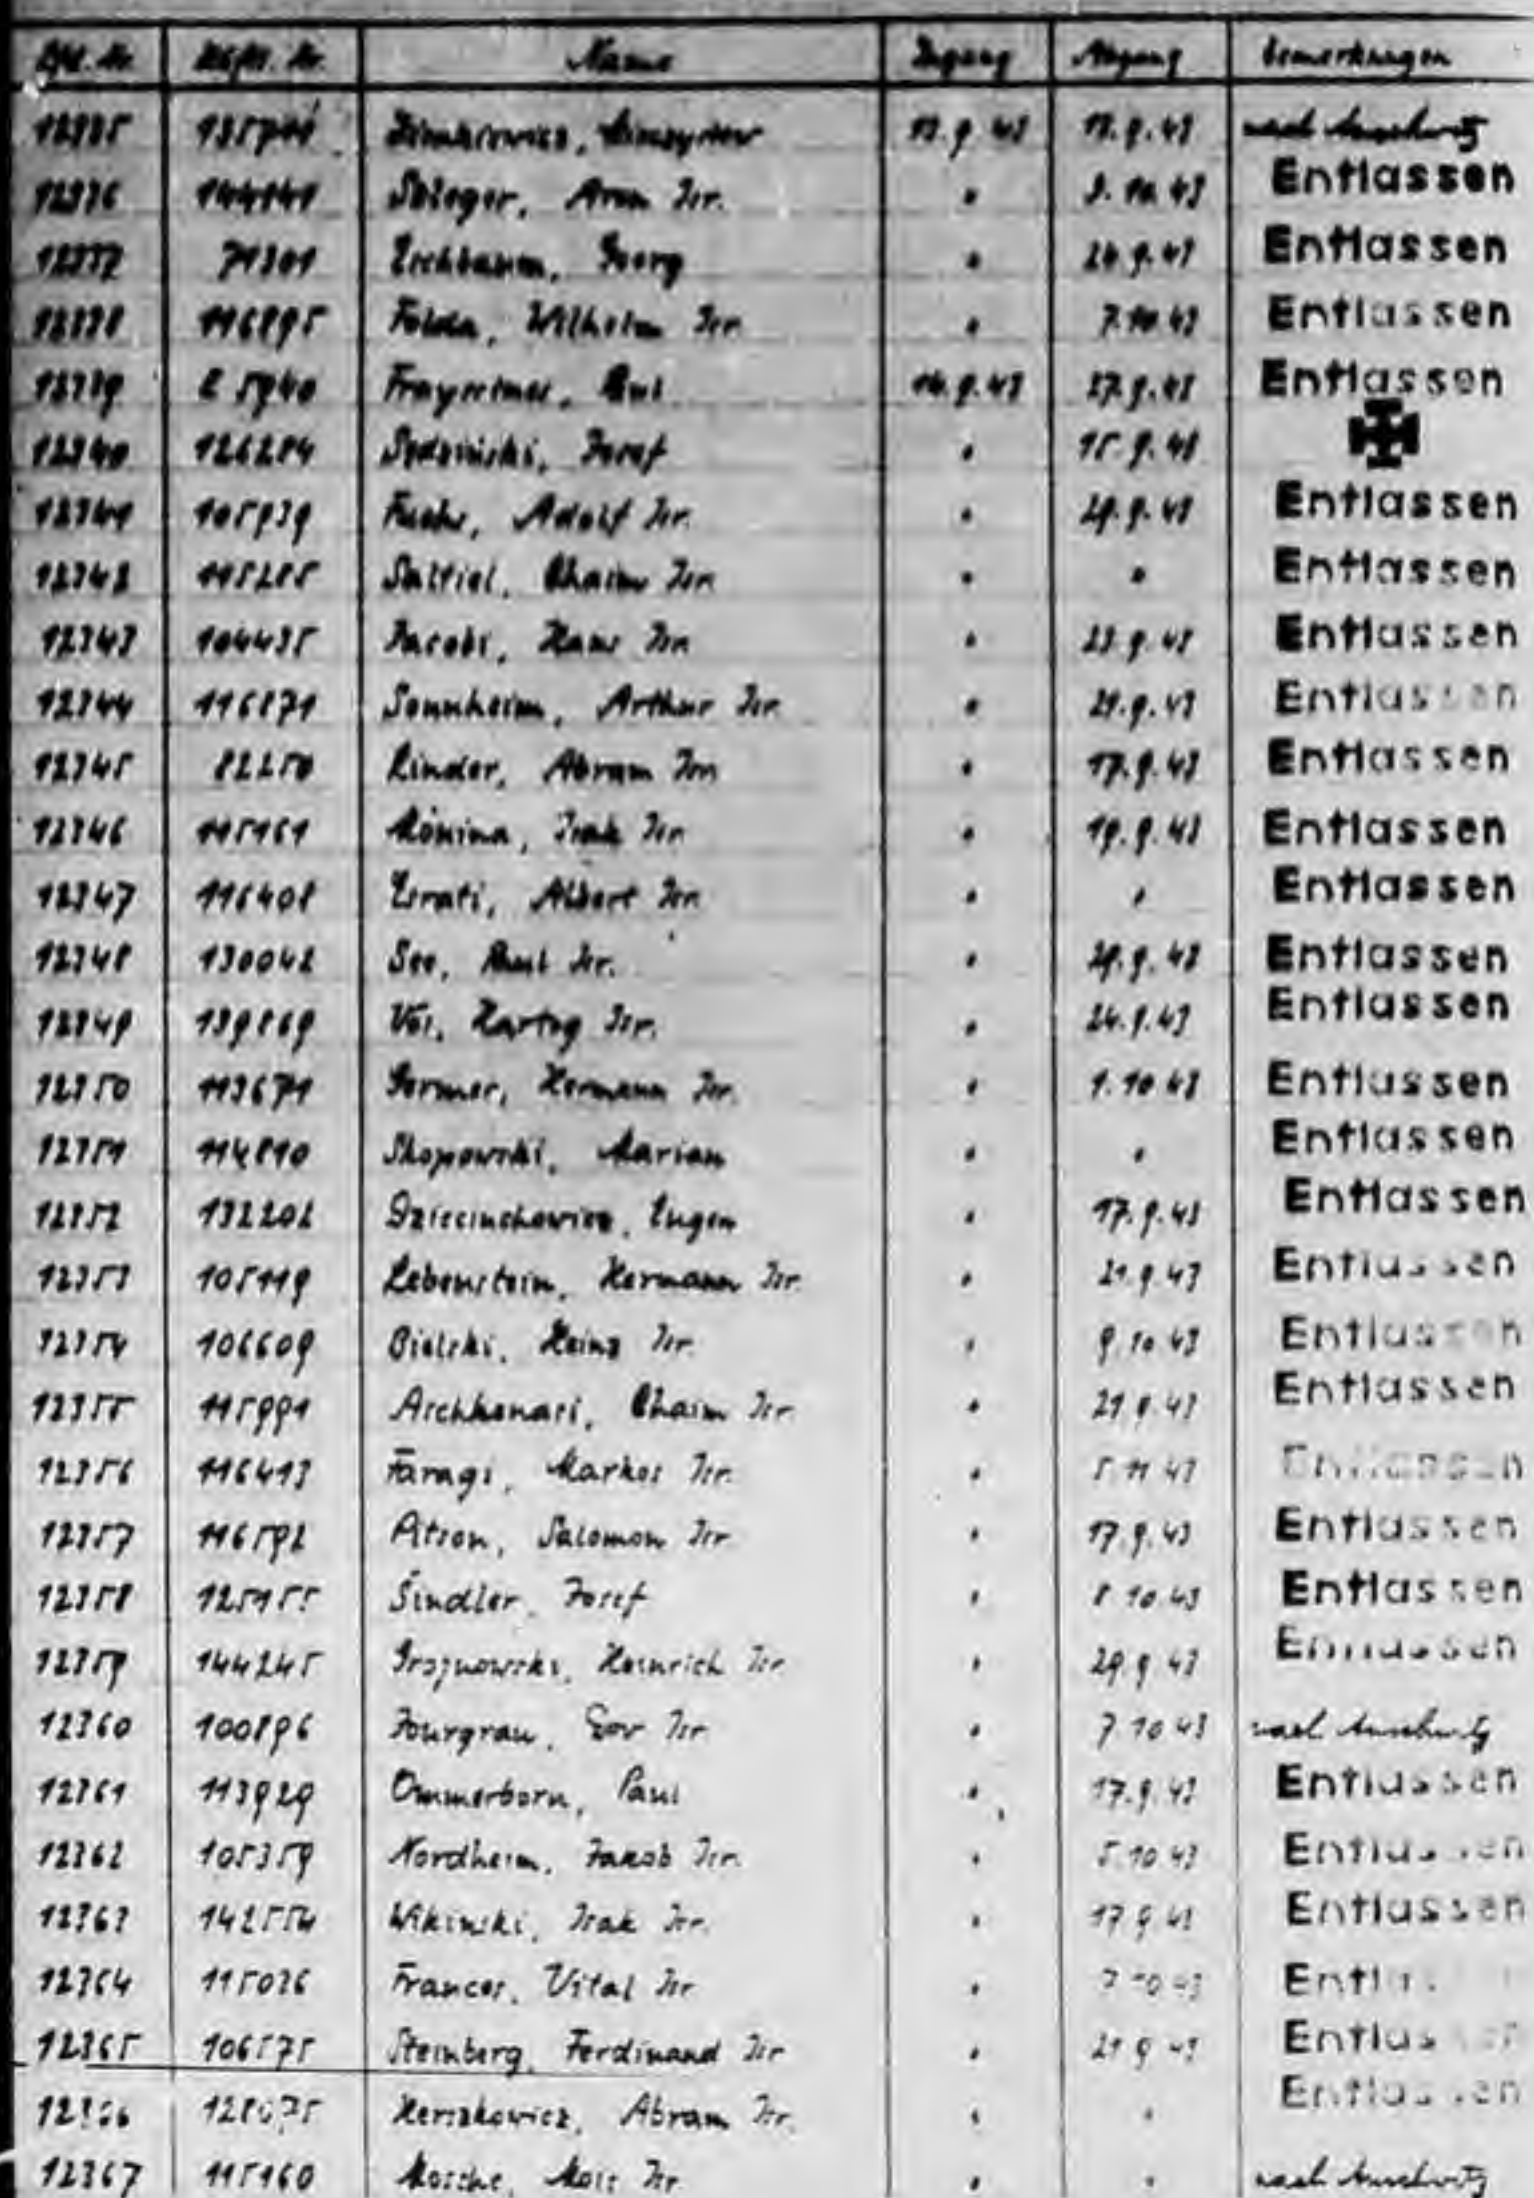 Lfd. Nr. Häftl. Nr. Name Zugang Abgang Bemerkungen
12335 nach Auschwitz
12336 144141 Isr. " 9.10.43 Entlassen
12337 71301 Georg " Entlassen
12338 116895 Folda, Wilhelm Isr. " 7.10.43 Entlassen
12339 14.9.43 27.9.43 Entlassen
12340 Josef " 15.9.43
12341 105939 Fuchs, Adolf Isr. " 29.9.43 Entlassen
12342 115285 Saltiel, Chaim Isr. " " Entlassen
12343 104435 Jacobi, Hans Isr. " 23.9.43 Entlassen
12344 116871 Sonnheim, Arthur Isr. " 21.9.43 Entlassen
12345 82250 Rinder, Abram Isr. " 17.9.43 Entlassen
12346 115161 Isak Isr. " 19.9.43 Entlassen
12347 116408 Esrati, Albert Isr. " " Entlassen
12348 130042 See, Paul Isr. " 29.9.43 Entlassen
12349 139869 Vos, Hartog Isr. " 24.9.43 Entlassen
12350 113671 Germer, Hermann Isr. " 1.10.43 Entlassen
12351 114810 Skopowski, Marian " " Entlassen
12352 132202 Eugen " 17.9.43 Entlassen
12353 105119 Lebenstein, Hermann Isr. " 21.9.43 Entlassen
12354 106609 Bielski, Heinz Isr. " 9.10.43 Entlassen
12355 115991 Aschkenasi, Chaim Isr. " 21.9.43 Entlassen
12356 116413 Faragi, Markos Isr. " 5.11.43 Entlassen
12357 116592 Pitson, Salomon Isr. " 17.9.43 Entlassen
12358 125155 Šindler, Josef " 8.10.43 Entlassen
12359 144245 Heinrich Isr. " 29.9.43 Entlassen
12360 100896 Isr. " 7.10.43 nach Auschwitz
12361 113929 Ommerborn, Paul " 17.9.43 Entlassen
12362 105359 Nordheim, Jakob Isr. " 5.10.43 Entlassen
12363 142554 Wikinski, Isak Isr. " 17.9.43 Entlassen
12364 115036 Frances, Vital Isr. " 7.10.43 Entlassen
12365 106575 Steinberg, Ferdinand Isr. " 21.9.43 Entlassen
12366 Herszkowicz, Abram Isr. " " Entlassen
12367 115160 Mosche, Mois Isr. " " nach Auschwitz